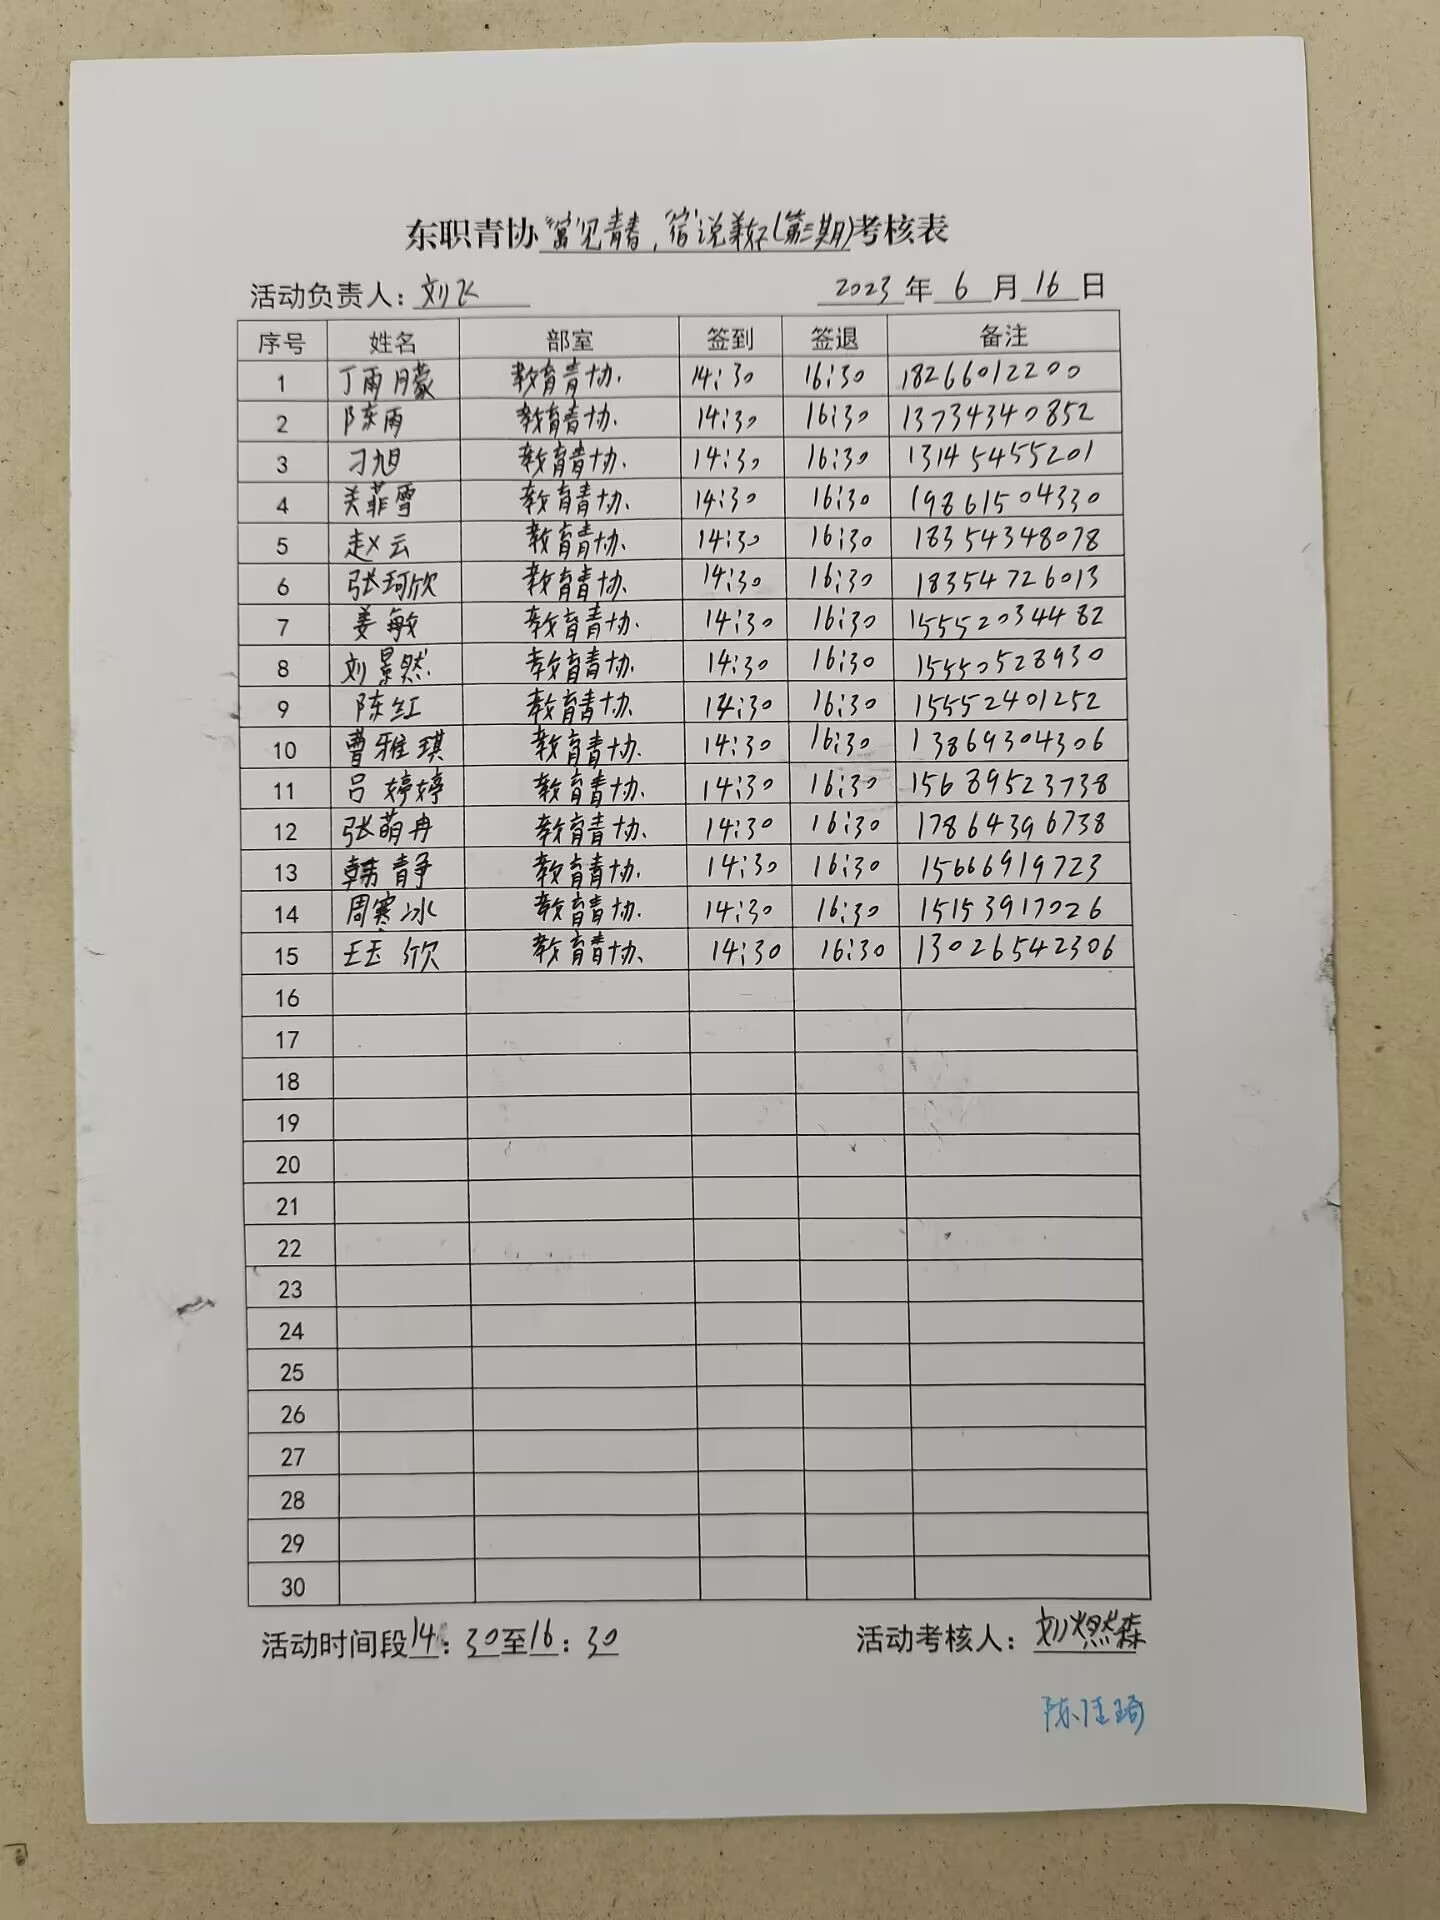 东职青协"寓"见青春，"宿"说美好(第三期)考核表
活动负责人：刘飞 2023年6月16日
序号 姓名 部室 签到 签退 备注
1 丁雨朦 教育青协. 14:30 16:30 18266012200
2 陈雨 教育青协. 14:30 16:30 13734340852
3 刁旭 教育青协. 14:30 16:30 13145455201
4 关菲雪 教育青协. 14:30 16:30 19861504330
5 赵云 教育青协. 14:30 16:30 18354348078
6 张珂欣 教育青协. 14:30 16:30 18354726013
7 姜敏 教育青协. 14:30 16:30 15552034482
8 刘景然 教育青协. 14:30 16:30 15550528930
9 陈红 教育青协. 14:30 16:30 15552401252
10 曹雅琪 教育青协. 14:30 16:30 13869304306
11 吕婷婷 教育青协. 14:30 16:30 15689523738
12 张萌冉 教育青协. 14:30 16:30 17864396738
13 韩静 教育青协. 14:30 16:30 15666919723
14 周寒冰 教育青协. 14:30 16:30 15153917026
15 王玉欣 教育青协. 14:30 16:30 13026542306
16
17
18
19
20
21
22
23
24
25
26
27
28
29
30
活动时间段14：30至16：30 活动考核人：刘燃森
陈佳琦